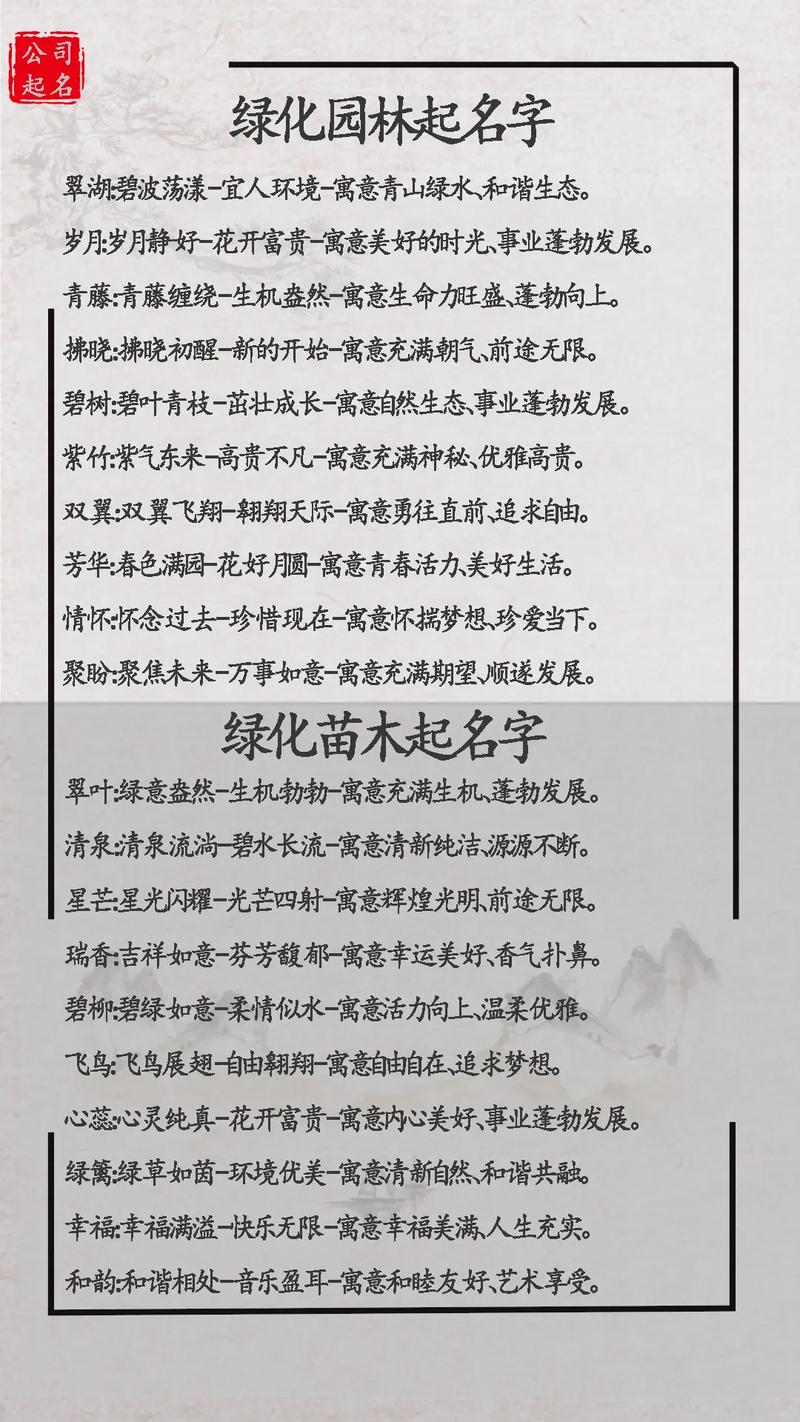 公司
起名
绿化园林起名字
翠湖:碧波荡漾-宜人环境-寓意青山绿水、和谐生态。
岁月:岁月静好-花开富贵-寓意美好的时光、事业蓬勃发展。
青藤:青藤缠绕-生机盎然-寓意生命力旺盛、蓬勃向上。
拂晓:拂晓初醒-新的开始-寓意充满朝气、前途无限。
碧树:碧叶青枝-茁壮成长-寓意自然生态、事业蓬勃发展。
紫竹:紫气东来-高贵不凡-寓意充满神秘、优雅高贵。
双翼:双翼飞翔-翱翔天际-寓意勇往直前、追求自由。
芳华:春色满园-花好月圆-寓意青春活力、美好生活。
情怀:怀念过去-珍惜现在-寓意怀揣梦想、珍爱当下。
聚盼:聚焦未来-万事如意-寓意充满期望、顺遂发展。
绿化苗木起名字
翠叶:绿意盎然-生机勃勃-寓意充满生机、蓬勃发展。
清泉:清泉流淌-碧水长流-寓意清新纯洁、源源不断。
星芒:星光闪耀-光芒四射-寓意辉煌光明、前途无限。
瑞香:吉祥如意-芬芳馥郁-寓意幸运美好、香气扑鼻。
碧柳:碧绿如意-柔情似水-寓意活力向上、温柔优雅。
飞鸟:飞鸟展翅-自由翱翔-寓意自由自在、追求梦想。
心蕊:心灵纯真-花开富贵-寓意内心美好、事业蓬勃发展。
绿篱:绿草如茵-环境优美-寓意清新自然、和谐共融。
幸福:幸福满溢-快乐无限-寓意幸福美满、人生充实。
和韵:和谐相处-音乐盈耳-寓意和睦友好、艺术享受。